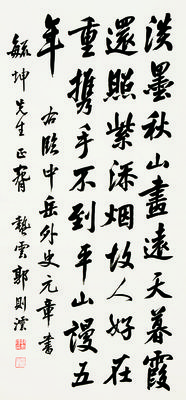 淡墨秋山畫遠天暮霞
還照紫添烟故人好在
重携手不到平山謾五
年
右臨中岳外史元章書
毓坤先生正臂 龔雲郭則澐